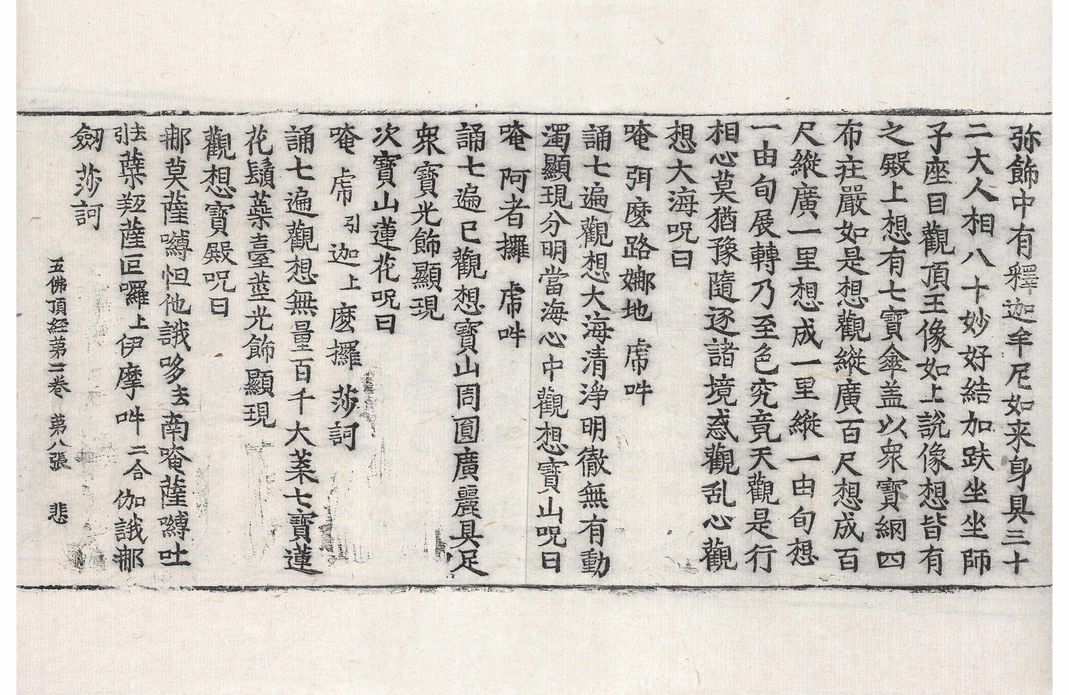 弥飾中有釋迦牟尼如来身具三十
二大人相八十妙好結加趺坐坐師
子座目觀頂王像如上說像想皆有
之殿上想有七寶傘盖以衆寶網四
布荘嚴如是想觀縱廣百尺想成百
尺縱廣一里想成一里縱一由旬想
一由旬展轉乃至色究竟天觀是行
相心莫猶豫隨逐諸境惑觀乱心觀
想大海呪曰
唵 弭麼路娜地 䖏吽
誦七遍觀想大海清淨明徹無有動
濁顯現分明當海心中觀想寶山呪曰
唵 阿者攞 䖏吽
誦七遍已觀想寶山周圓廣麗具足
衆寶光飾顯現
次寶山蓮花呪曰
唵 䖏引 迦上 麼攞 莎訶
誦七遍觀想無量百千大葉七寶蓮
花鬚蘂臺莖光飾顯現
觀想寶殿呪曰
那莫薩嚩怛他誐哆去南唵薩嚩吐
去引蘖羝薩叵囉上伊摩吽二合伽誐那
劒 莎訶
五佛頂經第二卷 第八張 悲